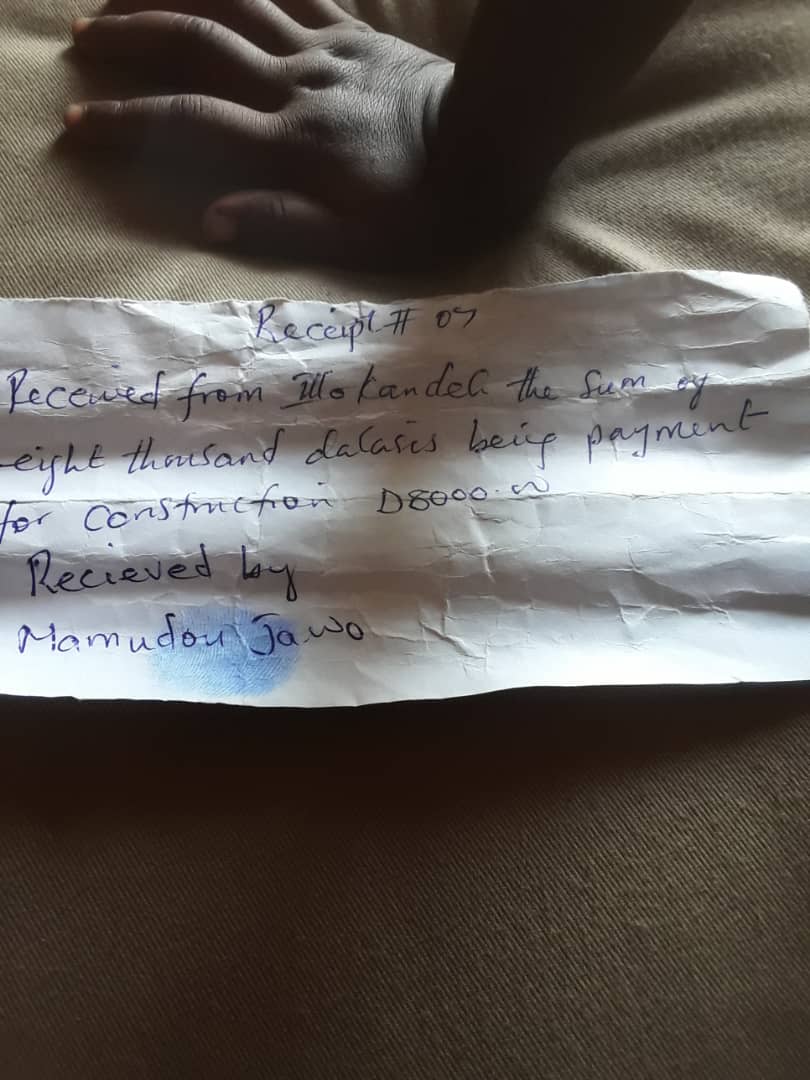 Receipt # 07
Received from Illo Kandeh the sum of
eight thousand dalasis being payment
for construction D8000.00
Recieved by
Mamudou Jawo